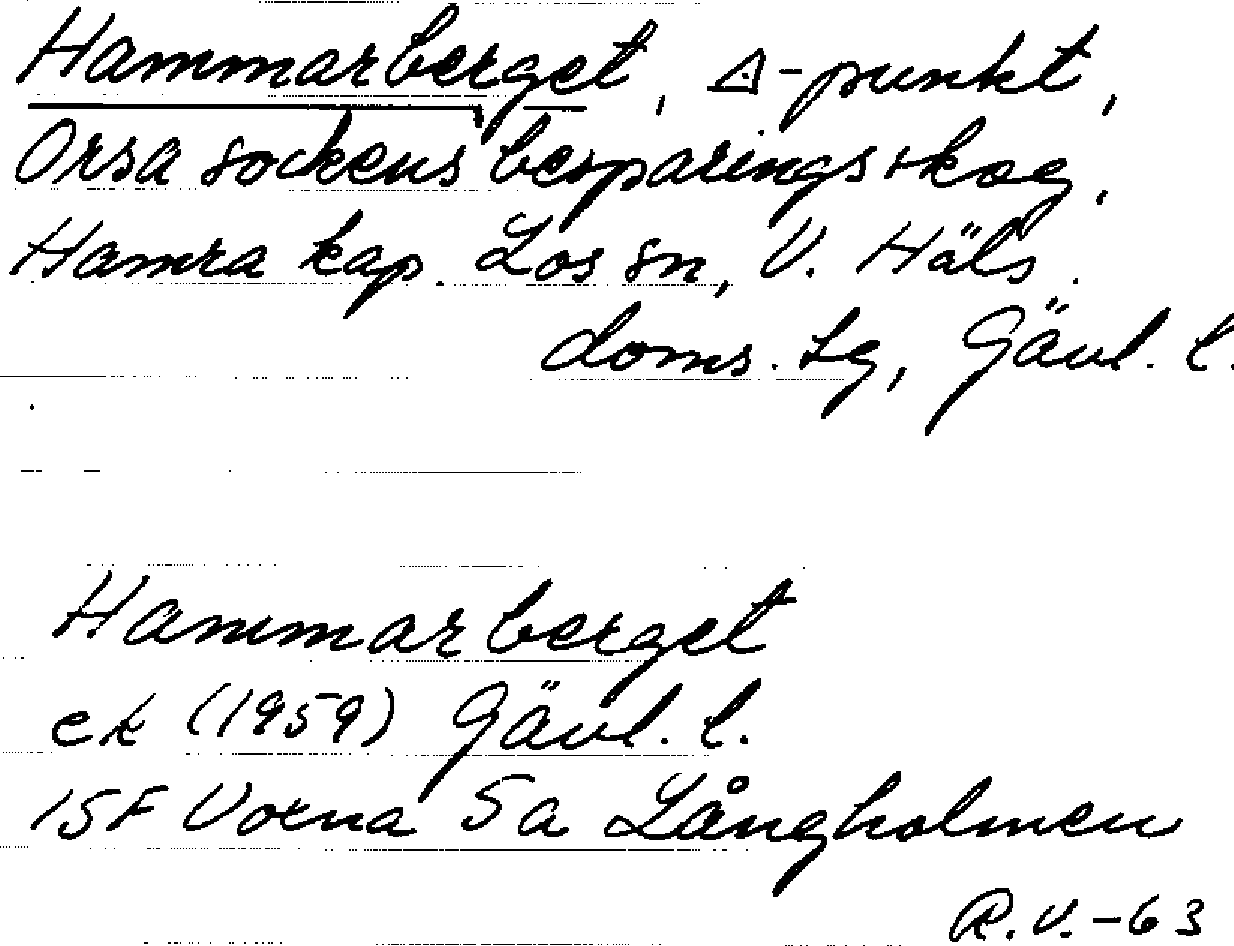 Hammarberget, △-punkt,
Orsa sockens besparingsskog,
Hamra kap. Los sn, V. Häls.
doms. sg, Gävl. l.
Hammarberget
ek (1959) Gävl. l.
15F Voxna 5a Långholmen
R.V.-63